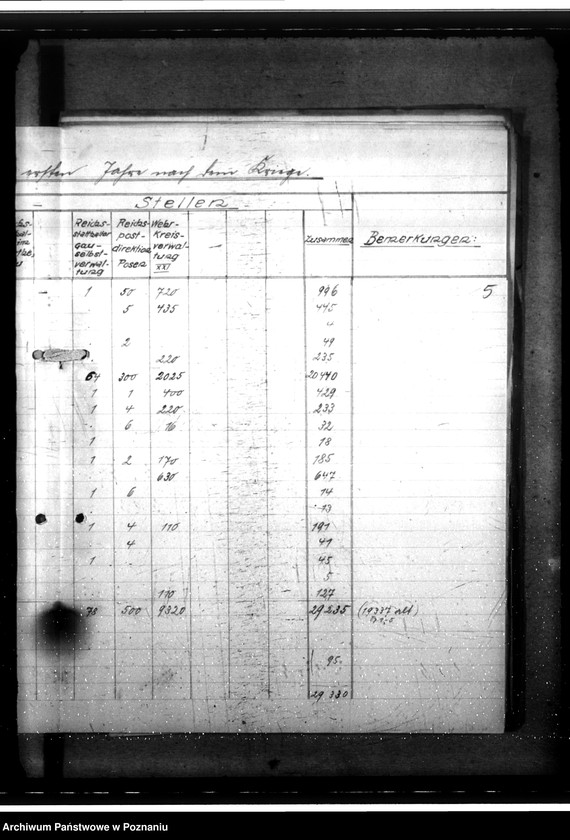 ersten Jahre nach dem Kriege.
Stellen
Reichs-statthalter gau-selbst-verwal-tung
Reichs-post-direktion Posen
Wehr-Kreis-verwal-tung XXI
Zusammen
Bemerkungen:
5
- 1 50 720 996
5 435 445
4
2 49
220 235
64 300 2025 20440
1 1 400 429
1 4 220 233
6 16 32
1 18
1 2 170 185
630 647
1 6 14
13
1 4 110 191
4 41
1 45
5
110 127
73 500 9320 29235 (19337 alt)
95.
29 330
Archiwum Państwowe w Poznaniu